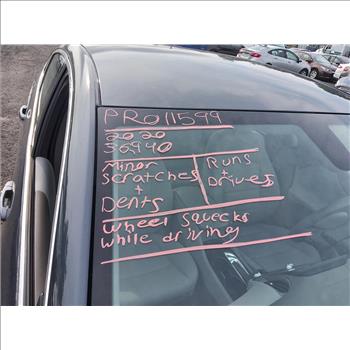 PRO11599
2020
36,940
Minor
Scratches
+
Dents
Runs
+
Drives
Wheel Squecks
while driving